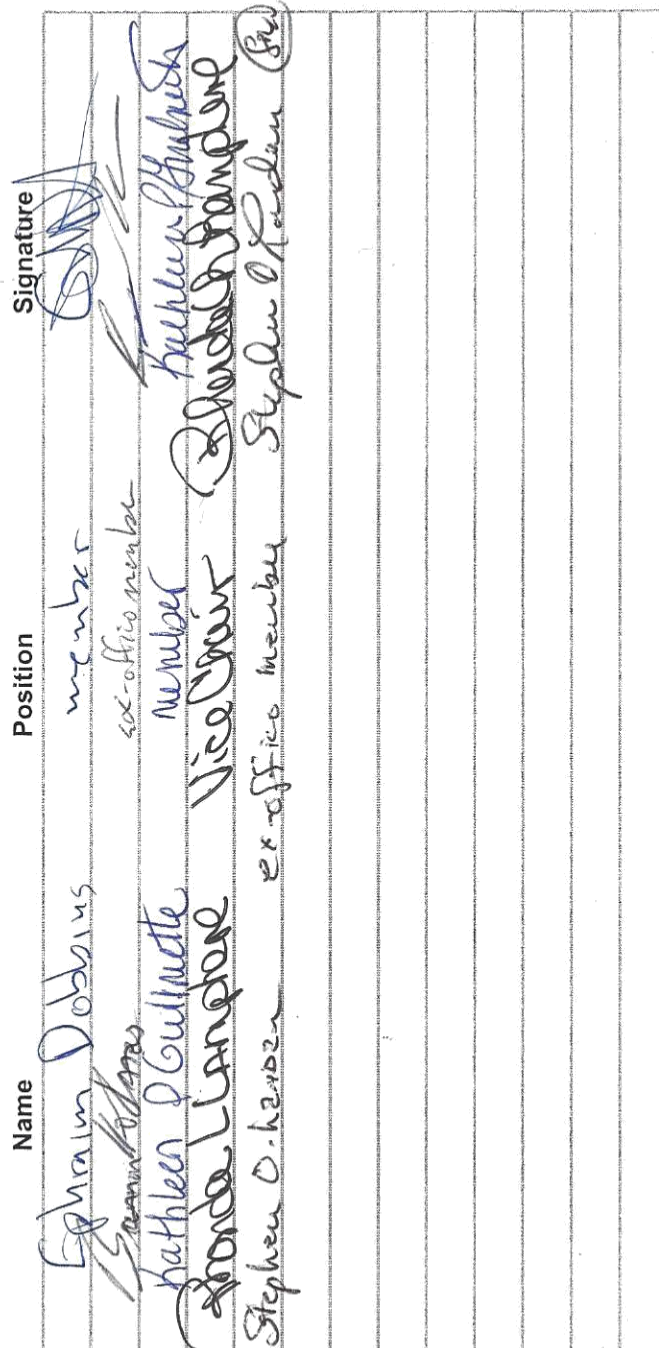 Name Position Signature
Ephraim Dobbins member
ex-officio member
Kathleen P Guilmette member Kathleen P Guilmette
Rhonda L Lamphere Vice Chair Rhonda L Lamphere
Stephen O. ex-officio member Stephen O